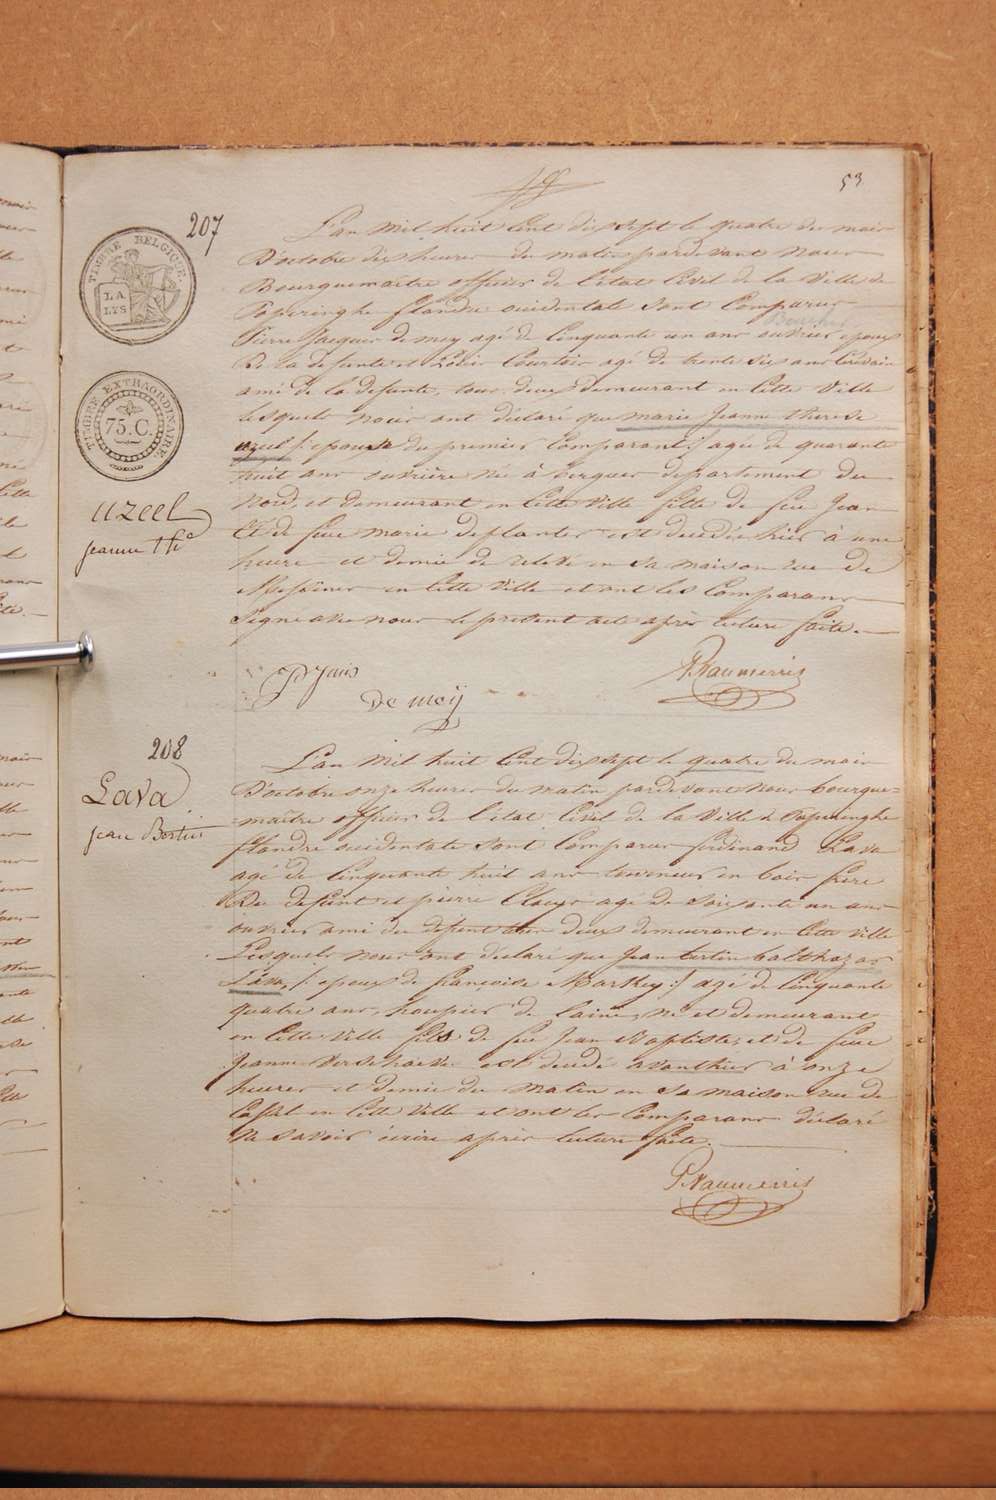 53
207
TIMBRE BELGIQUE.
LA
LYS
TIMBRE EXTRAORDINAIRE.
75.C.
uzeel
jeanne thè
L'an mil huit Cent dix sept le quatre du mois
D'octobre dix heures du matin pardevant nous
Bourguemaitre officier de l'état Civil de la Ville de
Poperinghe flandre occidentale sont Comparus
Pierre Jacques de mey agé de Cinquante un ans ouvrier epoux
De la defunte et Courtois agé de trente six ans Ecrivain
ami de la defunte, tous deux demeurant en Cette Ville
lesquels nous ont déclaré que marie Jeanne therese
uzeel /: epouse du premier Comparant :/ agee de quarante
huit ans ouvrière né à bergues departement du
Nord, et demeurant en Cette Ville fille de feu Jean
Et de feue marie deplanter est decédée hier à une
heure et demie de relevé en sa maison rue de
Messines en Cette Ville et ont les Comparans
Signé avec nous le present acte après lecture faite.
PJ Jaus
De meÿ
208
Lava
jean Bertin
L'an mil huit Cent dix sept le quatre du mois
D'octobre onze heures du matin pardevant nous bourgue=
=maitre officier de l'état Civil de la Ville de Poperinghe
flandre occidentale sont Comparus ferdinand Lava
agé de Cinquante huit ans tourneur en bois frère
Du defunt et pierre Claeys agé de soixante un ans
ouvrier ami du defunt tous deux demeurant en Cette Ville
Lesquels nous ont déclaré que Jean bertin balthazar
Lava, /: epoux de françoise Markey :/ agé de Cinquante
quatre ans, houpier de laine, né et demeurant
en Cette Ville fils de feu Jean Baptiste, et de feue
Jeanne Verschaeve est decedé avanthier à onze
heures et demie du matin en sa maison rue de
Cassel en Cette Ville et ont les Comparans déclaré
Ne savoir écrire après lecture faite.